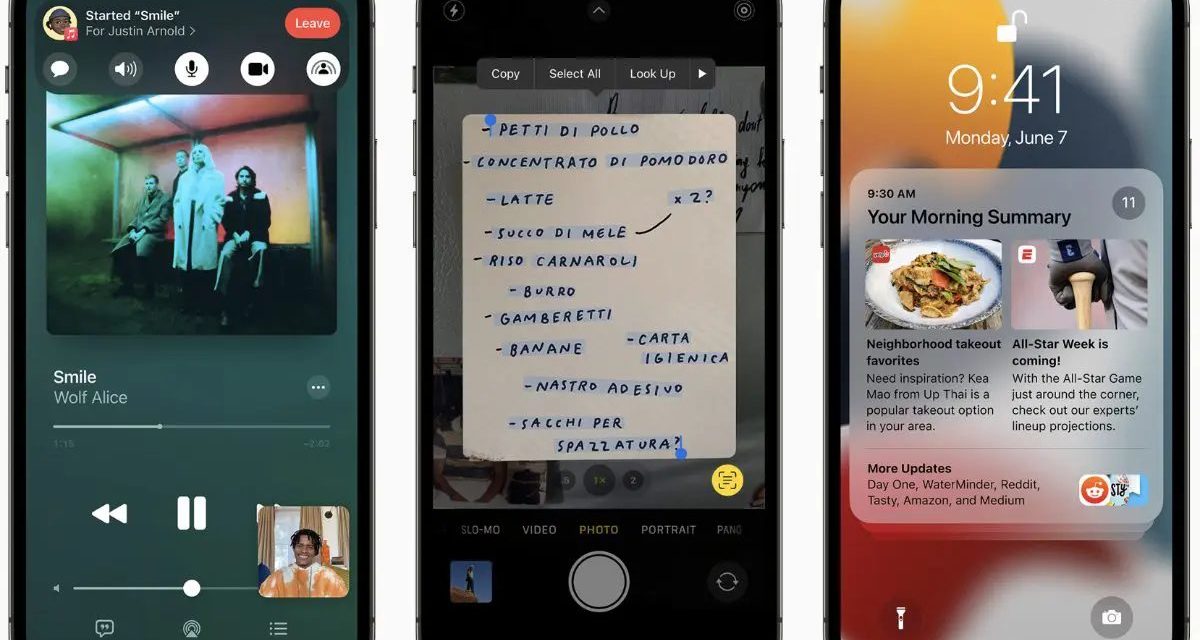 Started “Smile”
For Justin Arnold >
Leave
Smile
Wolf Alice
1:15
-2:02
Copy
Select All
Look Up
- PETTI DI POLLO
- CONCENTRATO DI POMODORO
- LATTE
x 2?
- SUCCO DI MELE
- RISO CARNAROLI
- BURRO
- GAMBERETTI
- BANANE
- CARTA
IGIENICA
- NASTRO ADESIVO
- SACCHI PER
SPAZZATURA?
1×
2
SLO-MO
VIDEO
PHOTO
PORTRAIT
PANO
9:41
Monday, June 7
9:30 AM
Your Morning Summary
11
Neighborhood takeout
favorites
Need inspiration? Kea
Mao from Up Thai is a
popular takeout option
in your area.
All-Star Week is
coming!
With the All-Star Game
just around the corner,
check out our experts’
lineup projections.
More Updates
Day One, WaterMinder, Reddit,
Tasty, Amazon, and Medium